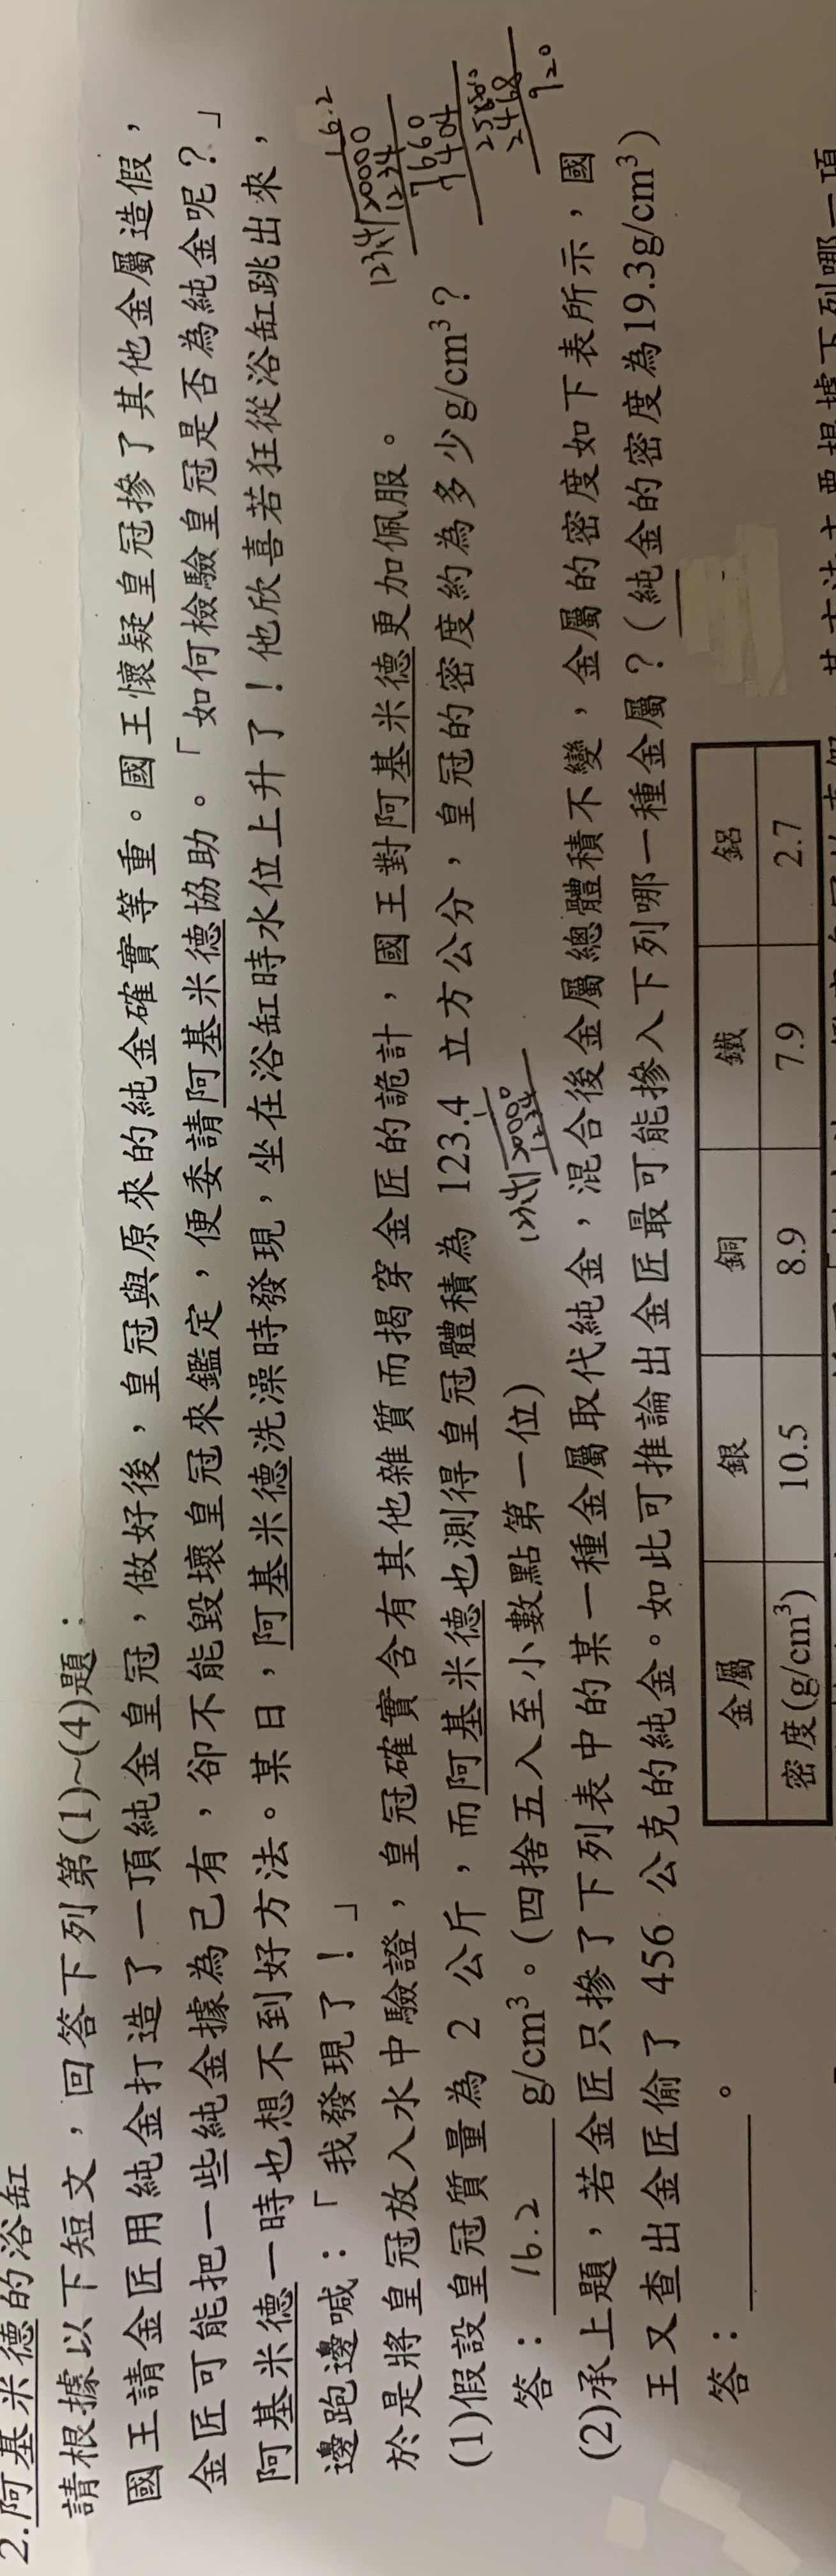 2.阿基米德的浴缸
請根據以下短文，回答下列第(1)~(4)題：
國王請金匠用純金打造了一頂純金皇冠，做好後，皇冠與原來的純金確實等重。國王懷疑皇冠摻了其他金屬造假，
金匠可能把一些純金據為己有，卻不能毀壞皇冠來鑑定，便委請阿基米德協助。「如何檢驗皇冠是否為純金呢？」
阿基米德一時也想不到好方法。某日，阿基米德洗澡時發現，坐在浴缸時水位上升了！他欣喜若狂從浴缸跳出來，
邊跑邊喊：「我發現了！」
於是將皇冠放入水中驗證，皇冠確實含有其他雜質而揭穿金匠的詭計，國王對阿基米德更加佩服。
(1)假設皇冠質量為 2 公斤，而阿基米德也測得皇冠體積為 123.4 立方公分，皇冠的密度約為多少g/cm³？
答： 16.2 g/cm³。(四捨五入至小數點第一位)
16.2
1234
20000
1234
7660
7404
2468
920
1
1234
20000
1234
(2)承上題，若金匠只摻了下列表中的某一種金屬取代純金，混合後金屬總體積不變，金屬的密度如下表所示，國
王又查出金匠偷了 456 公克的純金。如此可推論出金匠最可能摻入下列哪一種金屬？(純金的密度為19.3g/cm³)
答： 。
金屬 銀 銅 鐵 鋁
密度(g/cm³) 10.5 8.9 7.9 2.7